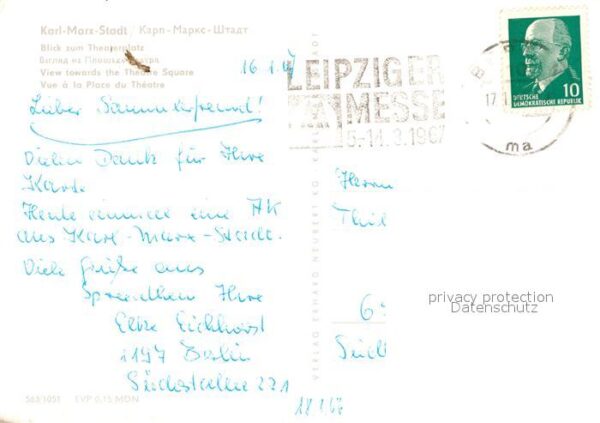 Karl-Marx-Stadt / Карл-Маркс-Штадт
Blick zum Theaterplatz
Взгляд на Площадь театра
View towards the Theatre Square
Vue à la Place du Théâtre
16.1.67
LEIPZIGER
MESSE
5.-14.3.1967
17.1
ma
10
DEUTSCHE
DEMOKRATISCHE REPUBLIK
Lieber Sammlerfreund!
Vielen Dank für Ihre
Karte.
Heute einmal eine AK
aus Karl-Marx-Stadt.
Viele Grüße aus
Spreeathen Ihre
Eichhorst
1197 Berlin
221
Herrn
VERLAG ERHARD NEUBERT KG KARL-MARX-STADT
privacy protection
Datenschutz
EVP 0,15 MDN
18.1.67